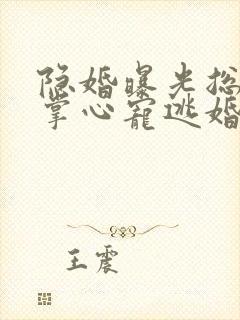 隐婚曝光总
掌心宠逃婚
王震